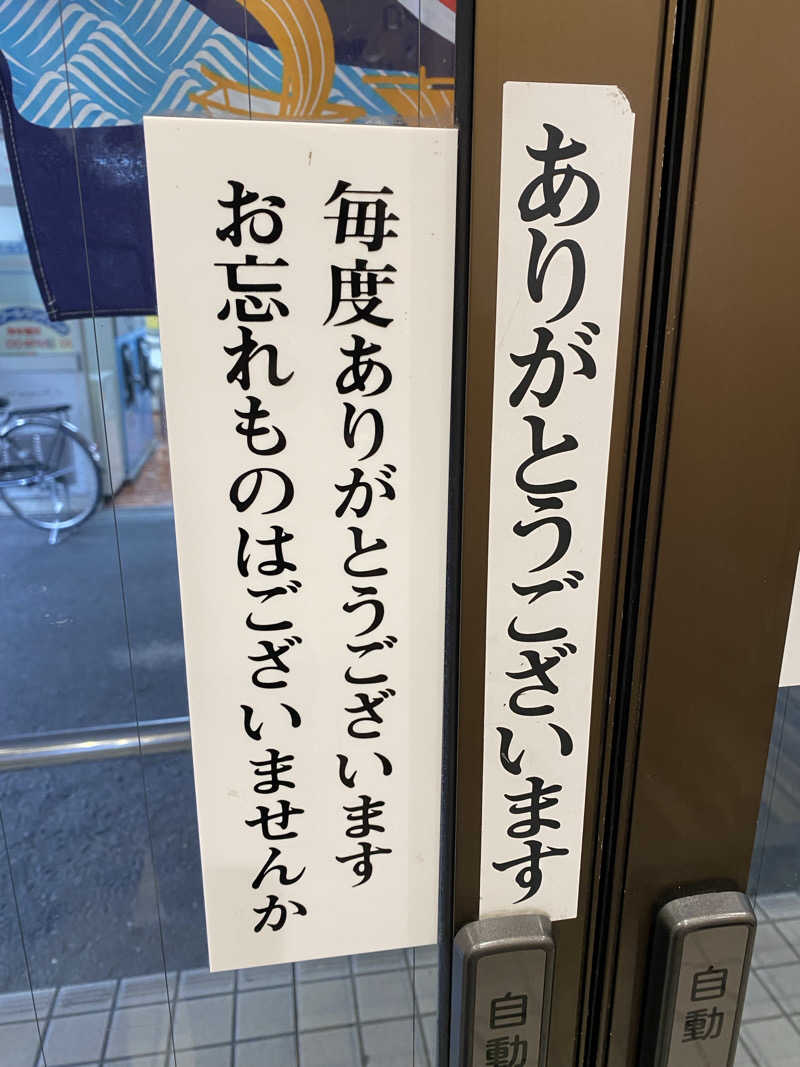 ありがとうございます
毎度ありがとうございます
お忘れものはございませんか
自動
自動